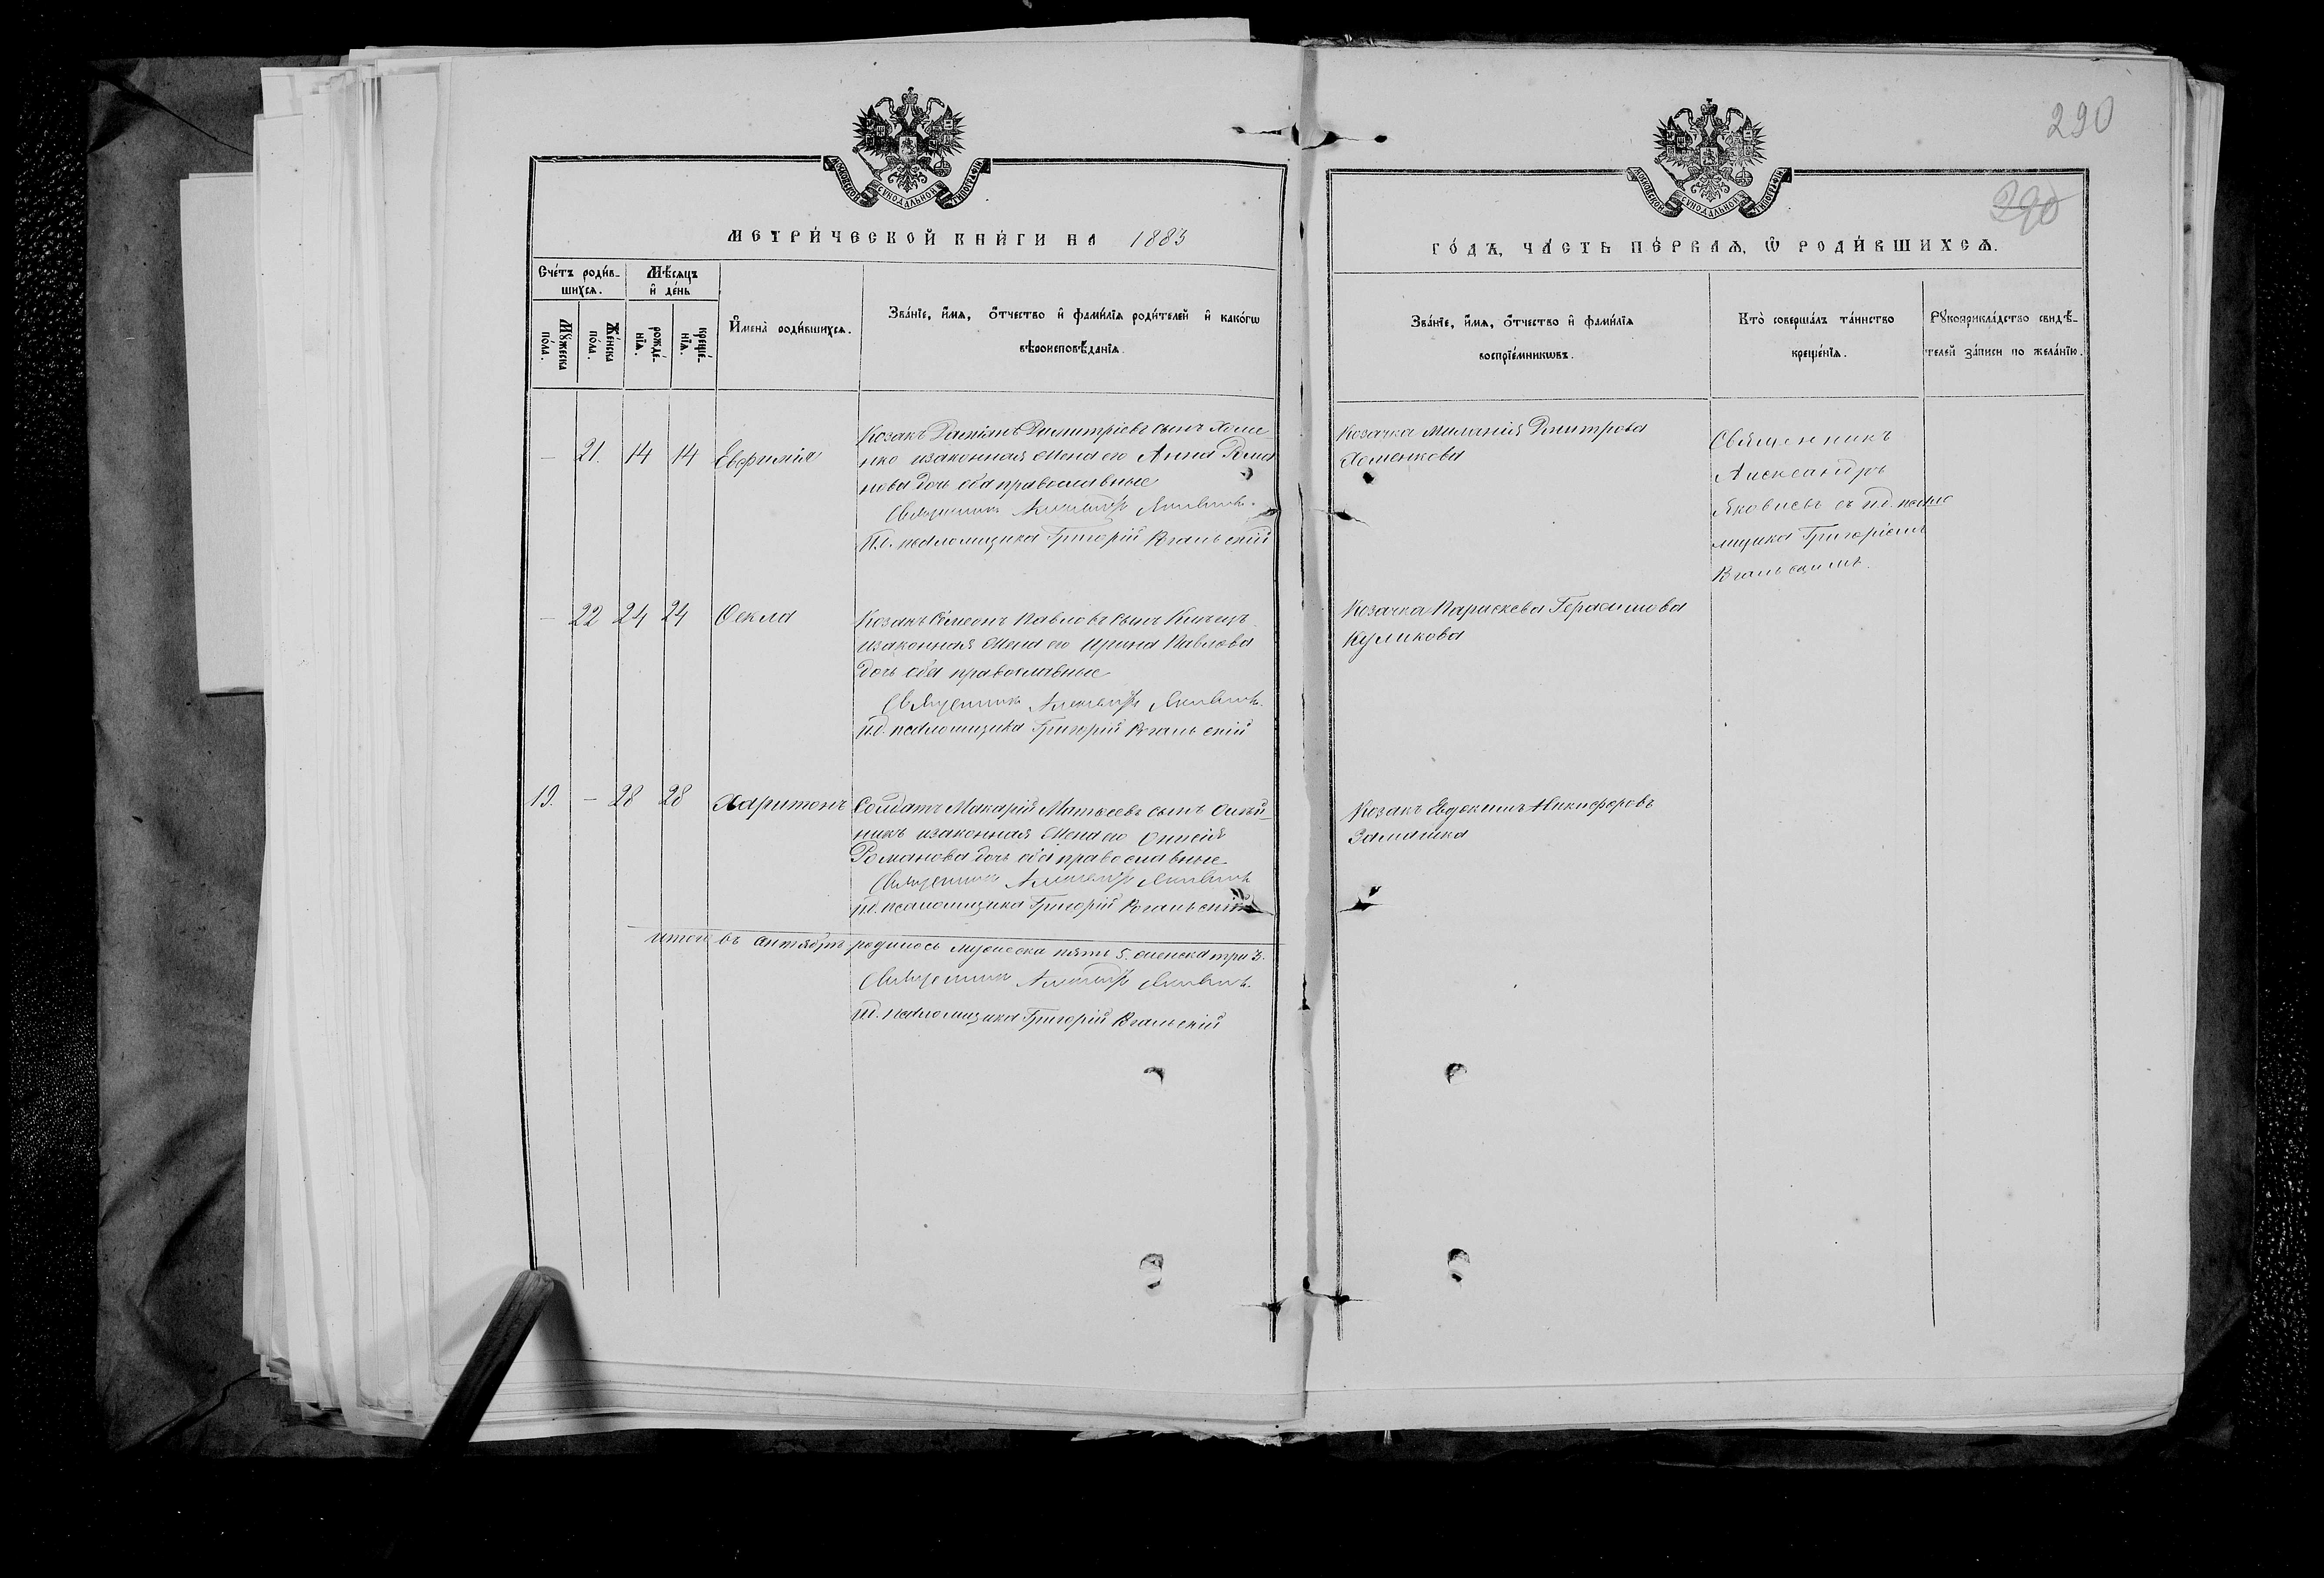 290
290
МОСКОВСКОЙ СѴНОДАЛЬНОЙ ТИПОГРАФІИ
МОСКОВСКОЙ СѴНОДАЛЬНОЙ ТИПОГРАФІИ
МЕТРИ́ЧЕСКОЙ КНИ́ГИ НА 1883
ГО́ДЪ, ЧА́СТЬ ПЕ́РВАѦ, Ѿ РОДИ́ВШИХСѦ.
Сче́тъ роди́в-
шихсѧ.
Мѣ́сѧцъ
и҆ де́нь
Мꙋ́жеска
по́ла.
Же́нска
по́ла.
рожде́-
нїѧ.
креще́-
нїѧ.
И҆мена̀ роди́вшихсѧ.
Зва́нїе, и҆́мѧ, ѻ҆́тчество и҆ фами́лїѧ роди́телей и҆ како́гѡ
вѣроисповѣ́данїѧ.
Зва́нїе, и҆́мѧ, ѻ҆́тчество и҆ фами́лїѧ
воспрїе́мникѡвъ.
Кто̀ соверша́лъ та́инство
креще́нїѧ.
Рꙋкоприкла́дство свидѣ́-
телей за́писи по жела́нїю.
— 21. 14 14 Евфимія
Козакъ Димитріевъ сынъ Хоме-
нко изаконная жена его Анна Рома
нова дочь оба православные
Священникъ Александръ Яковлевъ.
И.д. псаломщика Григорій
Козачка Миланія Дмитрова
Хоменкова
Священникъ
Александръ
Яковлевъ съ и.д. псало
мщика Григоріемъ
— 22 24 24 Ѳекла
Козакъ Симеонъ Павловъ сынъ
изаконная жена его Ирина Павлова
дочь оба православные
Священникъ Александръ Яковлевъ.
И.д. псаломщика Григорій
Козачка Параскева Герасимова
Куликова
19. — 28 28 Харитонъ
Солдатъ Макарій Матѳеевъ сынъ Олѣй-
никъ изаконная жена его
Романова дочь оба православные
Священникъ Александръ Яковлевъ
И.д. псаломщика Григорій
Козакъ Евдокимъ Никифоровъ
итого въ сентябрѣ родилось мужеска пять 5. женска три 3.
Священникъ Александръ Яковлевъ.
И.д. псаломщика Григорій